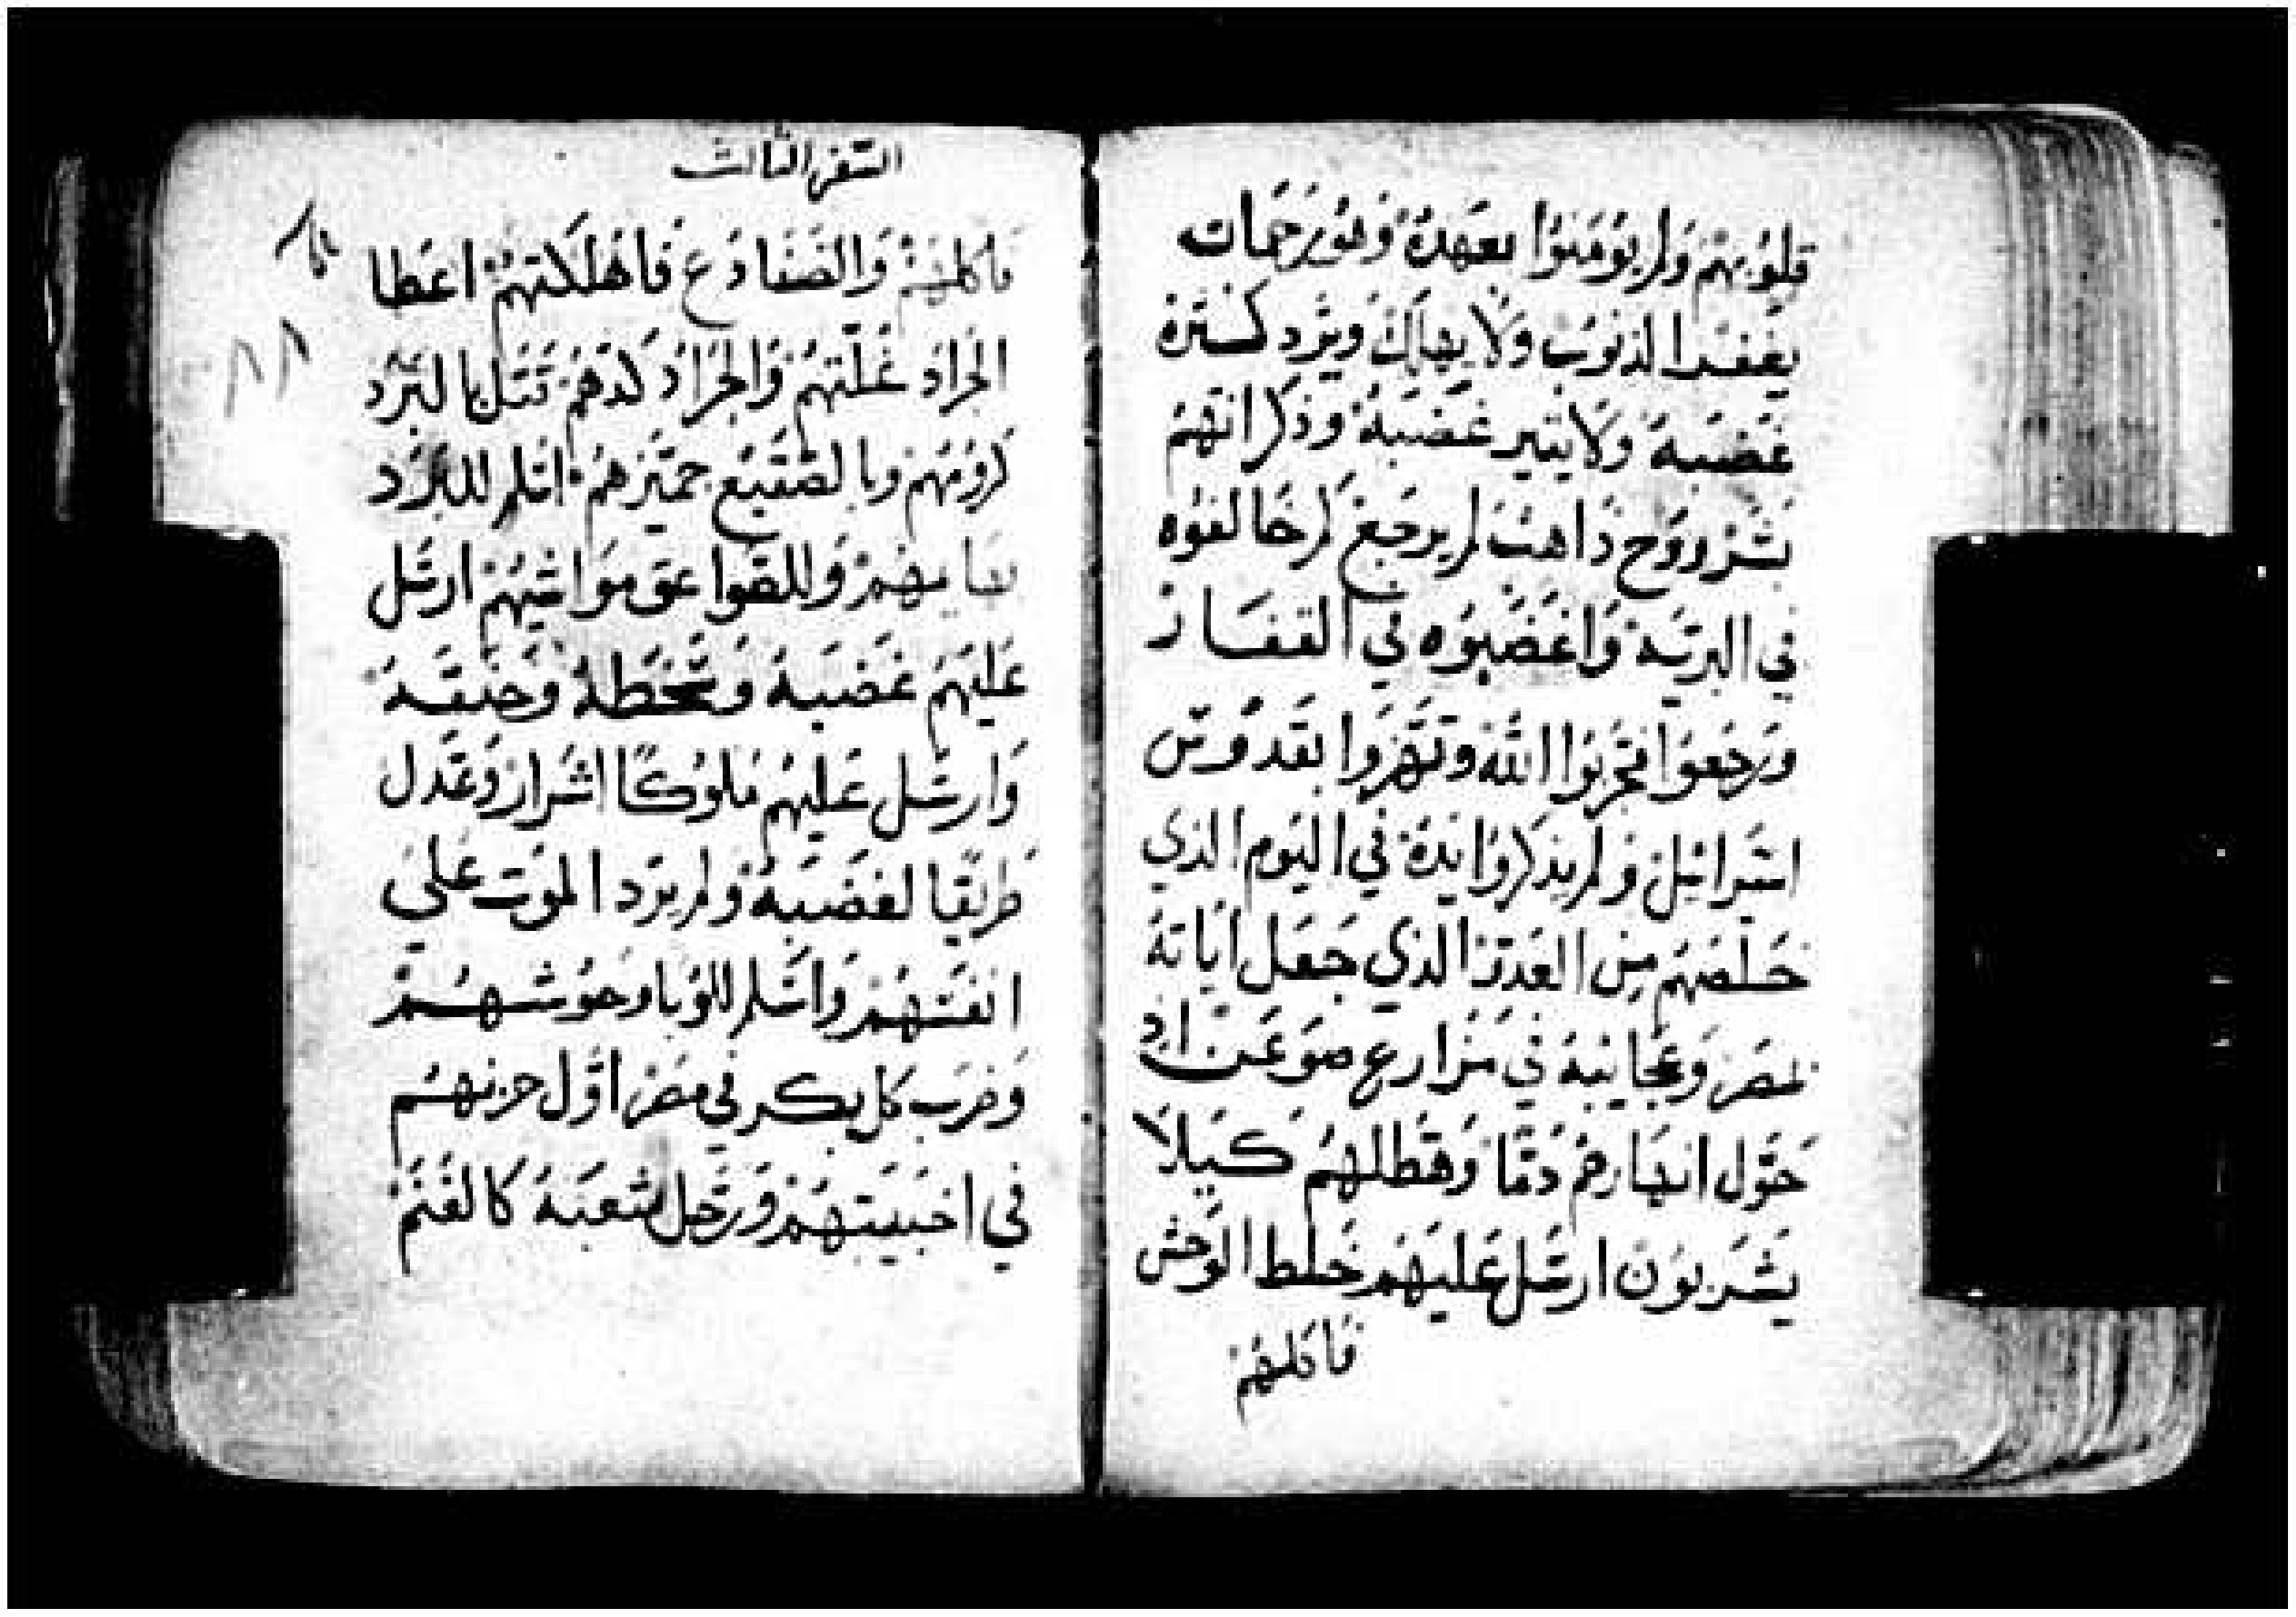 قلوبهم ولم يومنوا بعهده وهو رحمات
يغفر الذنوب ولا يهلك ويرد كثرة
غضبه ولا يثير غضبه وذكر انهم
بشر روح ذاهب لم يرجع كم خالفوه
في البرية واغضبوه في القفار
ورجعوا فجربوا الله وتقمروا بقدوس
اسرائيل ولم يذكروا يده في اليوم الذي
خلصهم من العدو الذي جعل اياته
بمصر وعجايبه في مزارع صوعن اذ
حول انهارهم دما وهطلهم كيلا
يشربون ارسل عليهم خلط الوحش
فاكلهم
السفر الثالث
فاكلهم والضفادع فاهلكتهم اعطا
الجراد غلتهم والجراد كدهم قتل بالبرد
كرومهم وبالصقيع جميزهم اسلم للبرد
بهايمهم وللصواعق مواشيهم ارسل
عليهم غضبه وسخطه وضيقه
وارسل عليهم ملوكا اشرار وعدل
طريقا لغضبه ولم يرد الموت على
انفسهم واسلم للوبا وحوشهم
وضرب كل بكر في مصر اول حزنهم
في اخبيتهم ورحل شعبه كالغنم